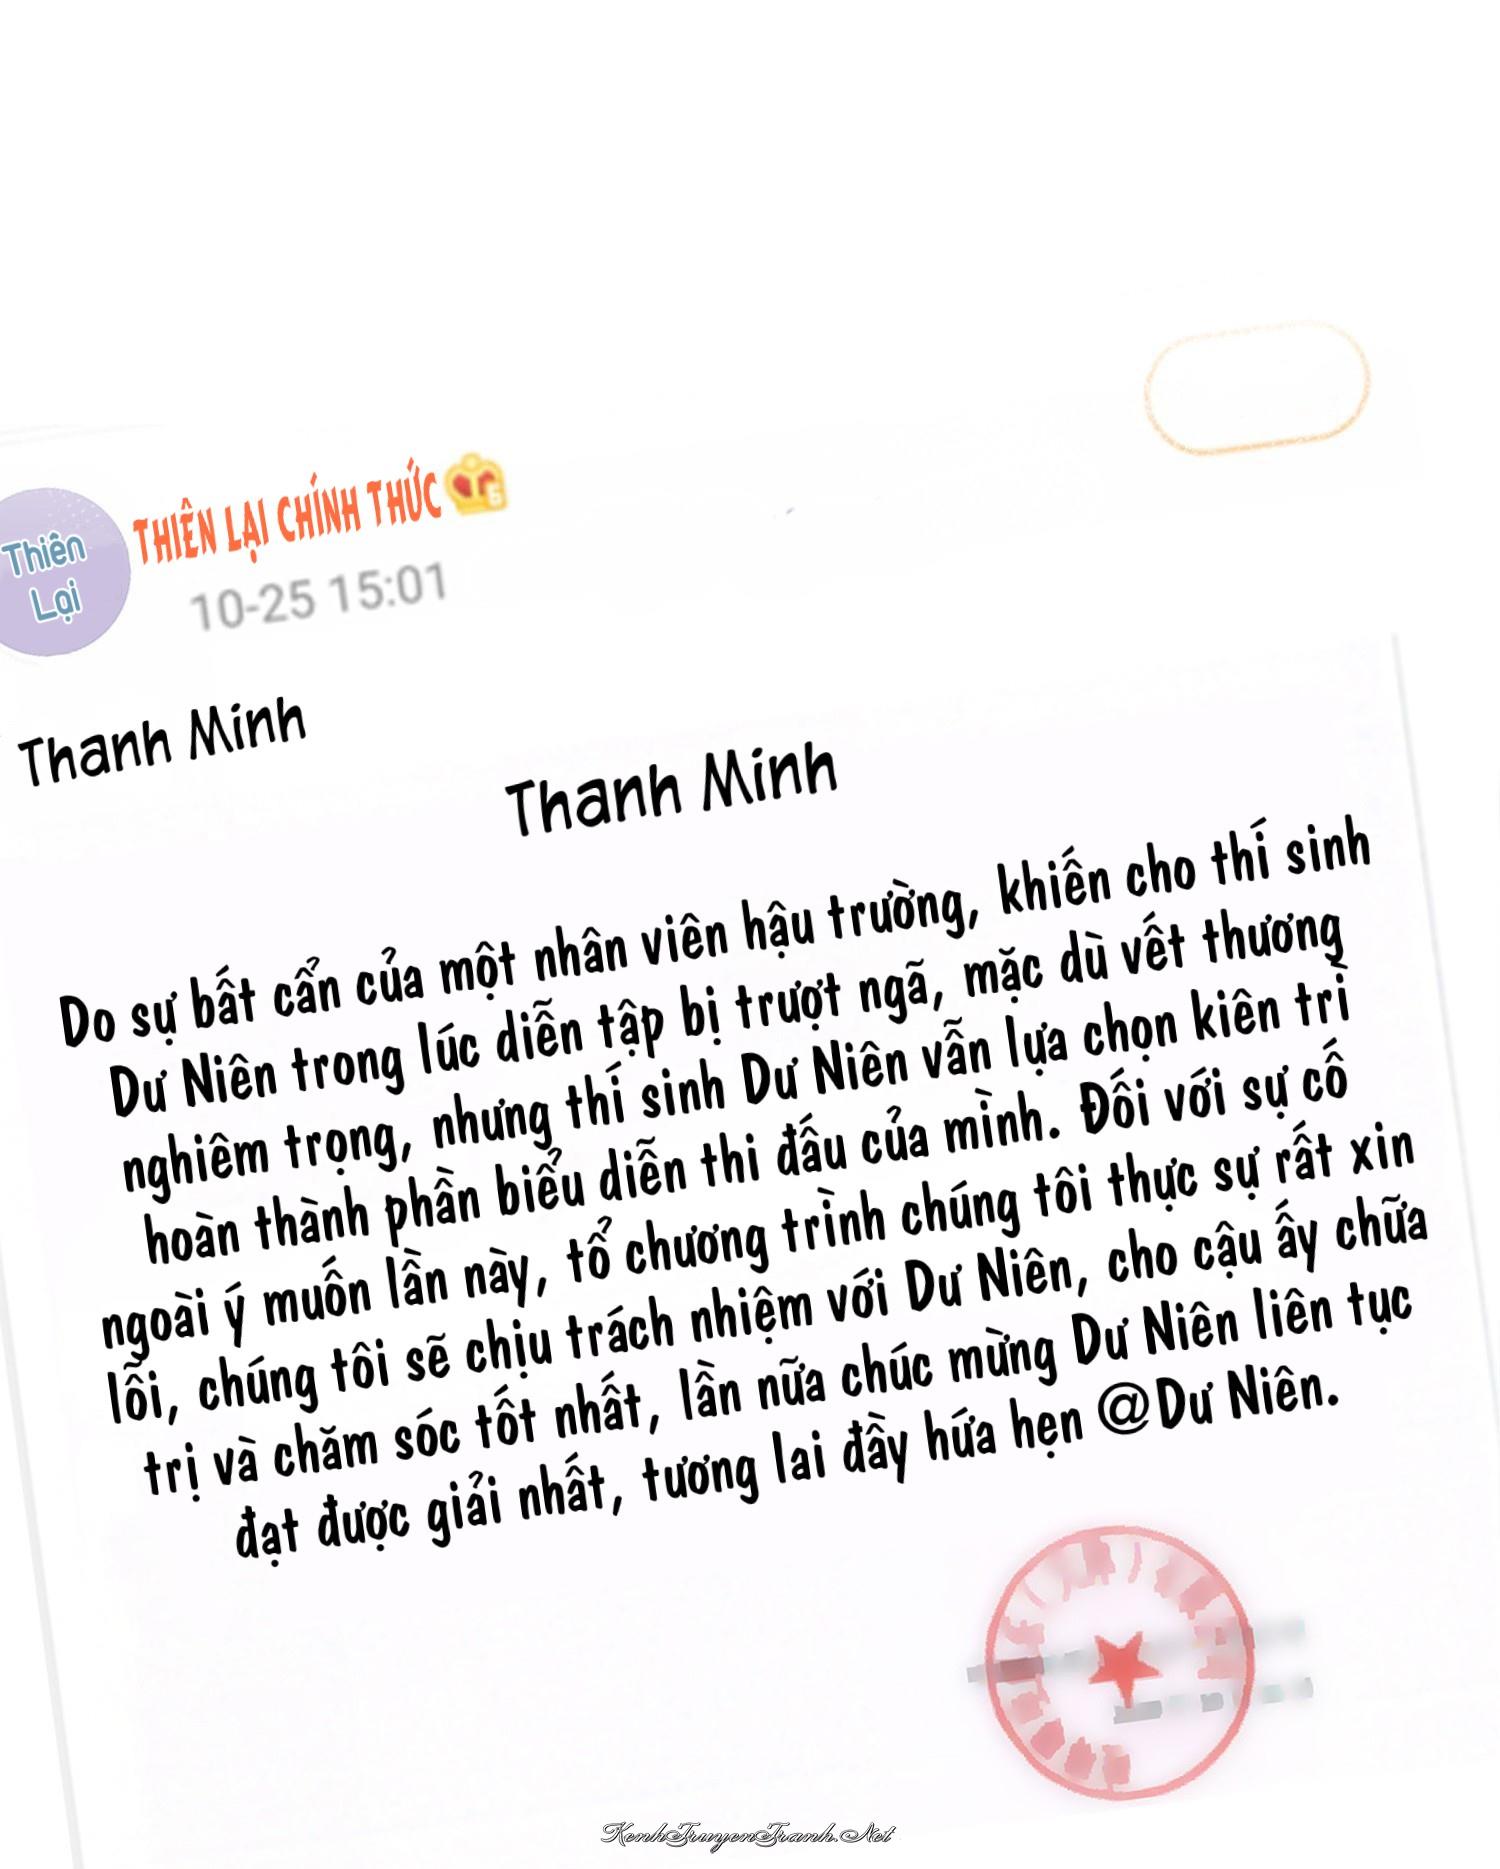 Thiên
Lại
THIÊN LẠI CHÍNH THỨC
6
10-25 15:01
Thanh Minh
Thanh Minh
Do sự bất cẩn của một nhân viên hậu trường, khiến cho thí sinh
Dư Niên trong lúc diễn tập bị trượt ngã, mặc dù vết thương
nghiêm trọng, nhưng thí sinh Dư Niên vẫn lựa chọn kiên trì
hoàn thành phần biểu diễn thi đấu của mình. Đối với sự cố
ngoài ý muốn lần này, tổ chương trình chúng tôi thực sự rất xin
lỗi, chúng tôi sẽ chịu trách nhiệm với Dư Niên, cho cậu ấy chữa
trị và chăm sóc tốt nhất, lần nữa chúc mừng Dư Niên liên tục
đạt được giải nhất, tương lai đầy hứa hẹn @Dư Niên.
KenhTruyenTranh.Net